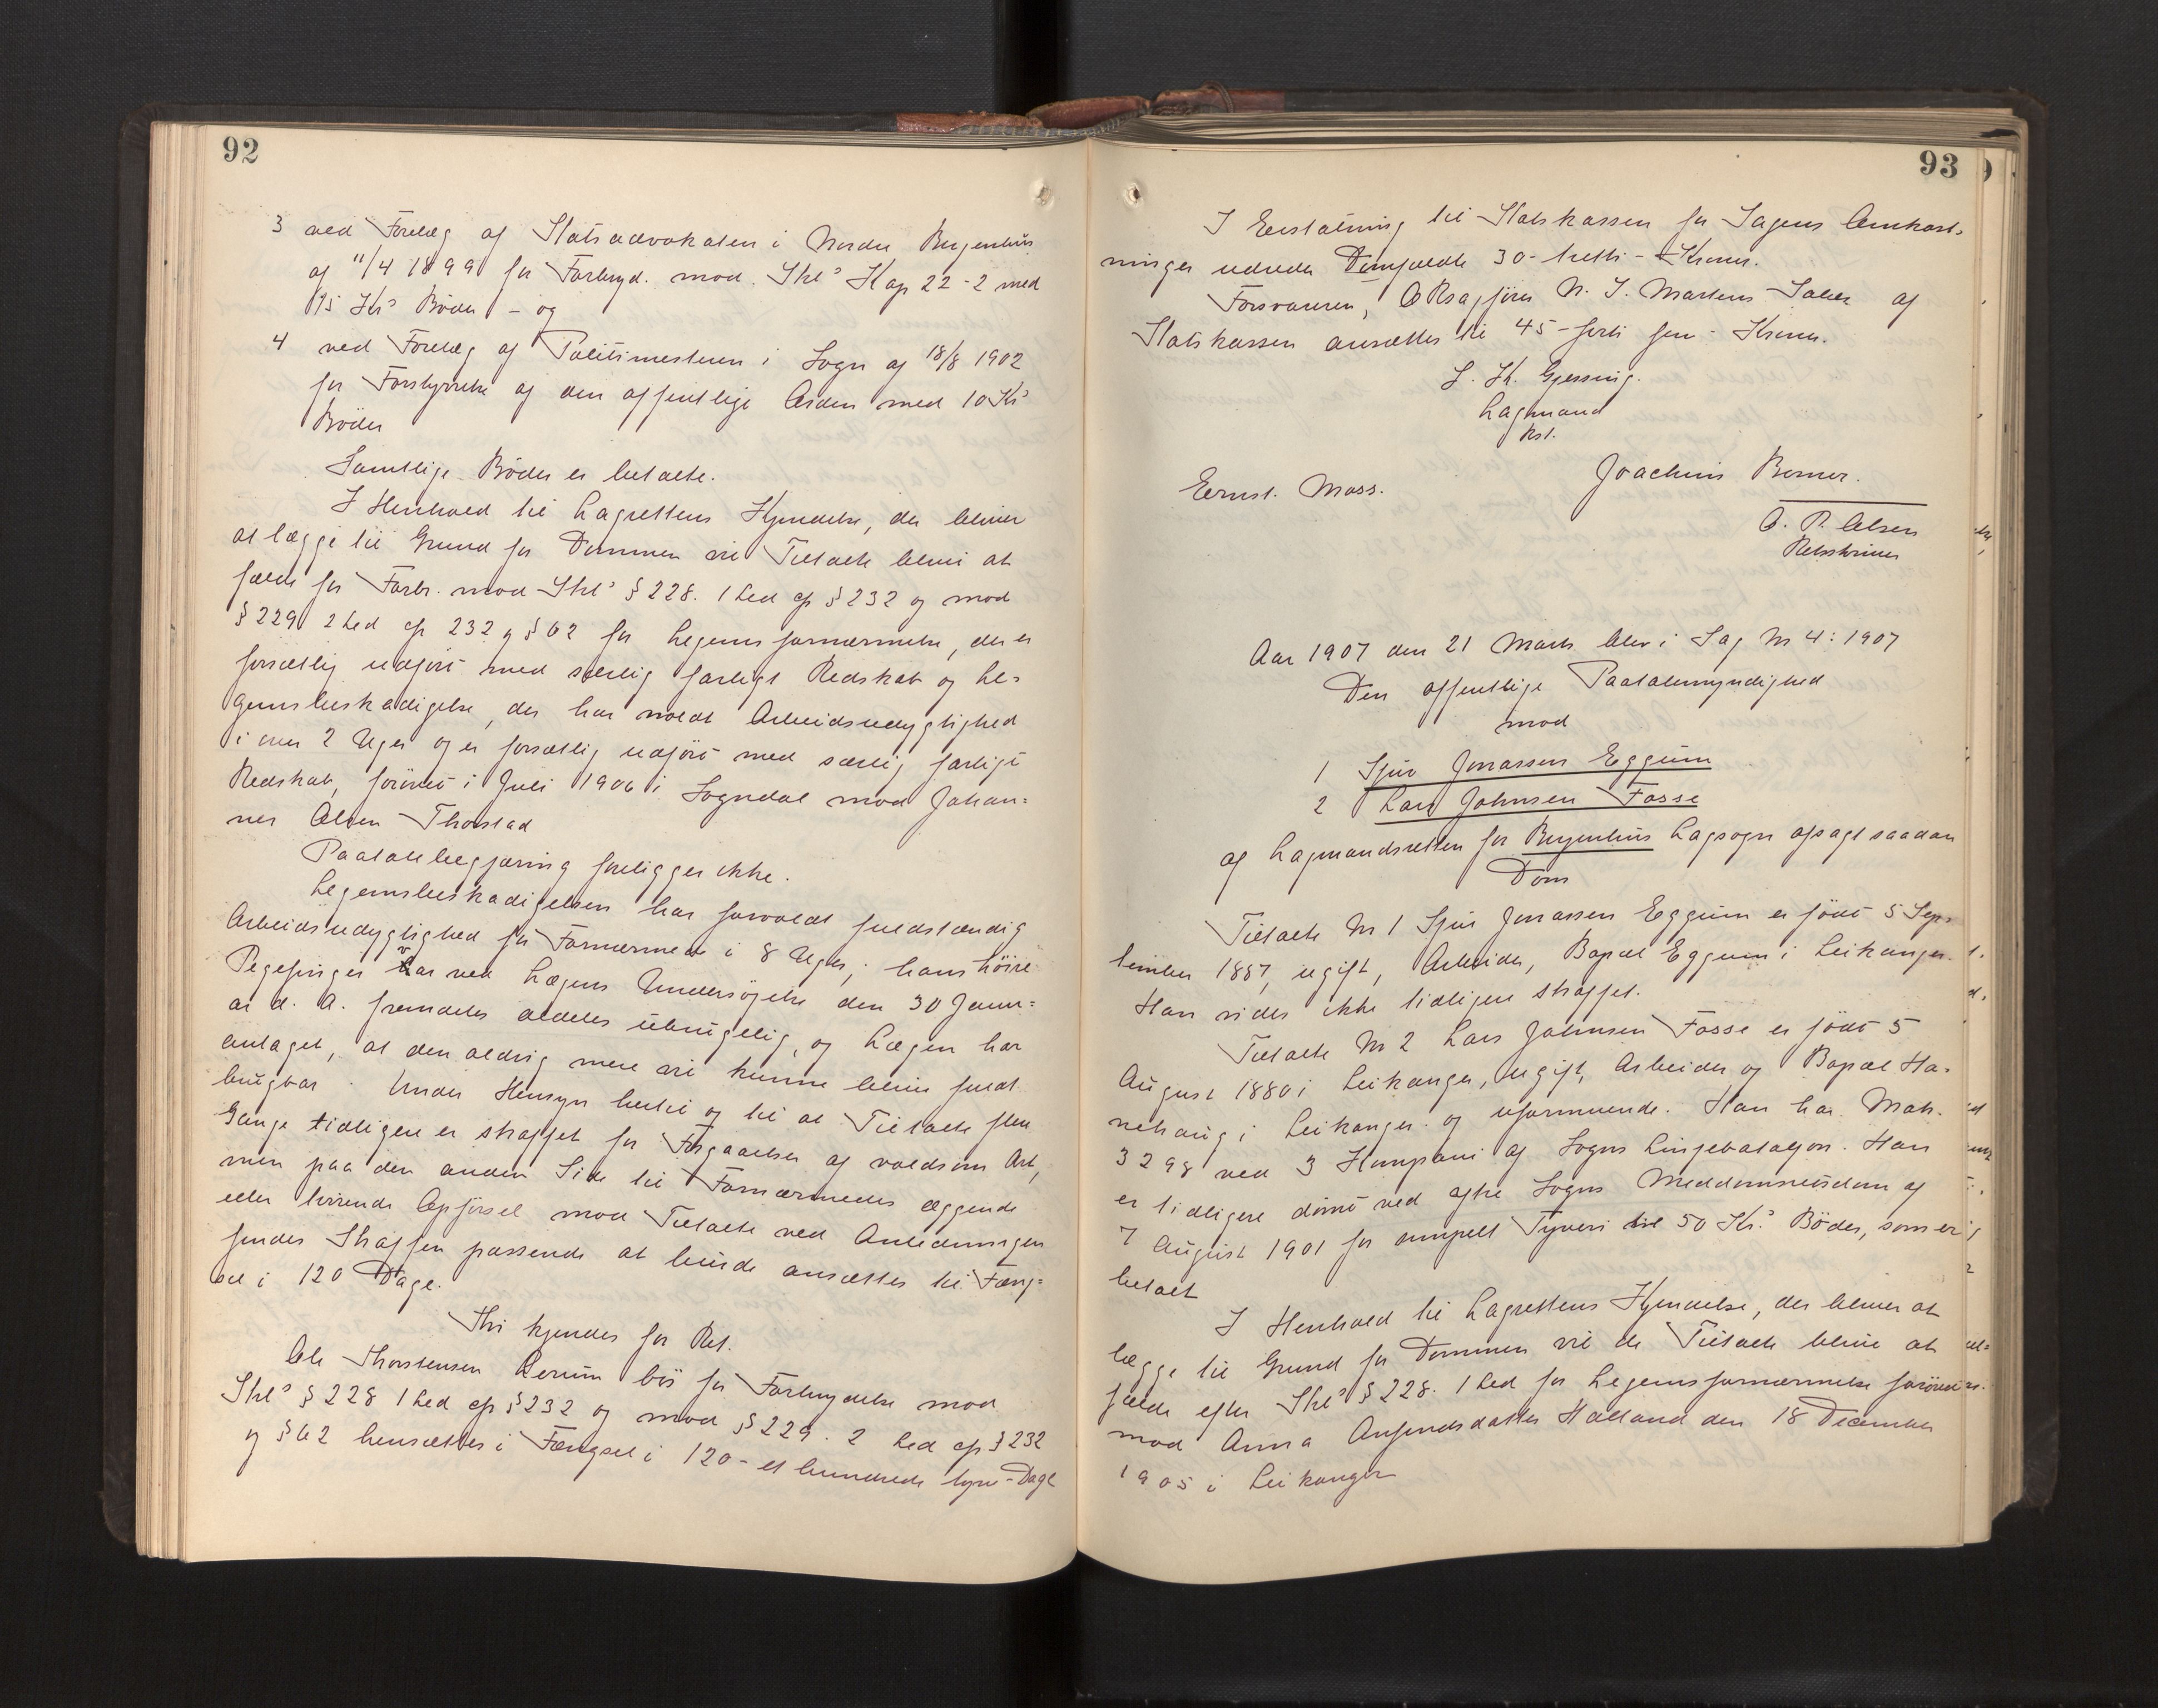 92
3 ved Forelæg af Statsadvokaten i Nordre Bergenhus
af 11/4 1899 for Forbryd. mod Strl's Kap 22-2 med
15 Kr's Böder - og
4 ved Forelæg af Politimesteren i Sogn af 18/8 1902
for Forstyrrelse af den offentlige Orden med 10 Kr's
Böder
Samtlige Böder er betalte.
I Henhold til Lagrettens Kjendelse, der bliver
at lægge til Grund for Dommen vil Tiltalte blive at
fælde for Forbr. mod Strl's § 228. 1 Led cfr § 232 og mod
§ 229 2 Led cfr 232 og § 62 for Legemsfornærmelse, der er
forsætlig udført med særlig farligt Redskab og Le-
gemsbeskadigelse, der har voldt Arbeidsudygtighed
i over 2 Uger og er forsætlig udført med særlig farligt
Redskab, forövet i Juli 1906 i Sogndal mod Johan-
nes Olsen Thorstad
Paatalebegjæring foreligger ikke.
Legemsbeskadigelsen har forvoldt fuldstændig
Arbeidsudygtighed for Fornærmede i 8 Uger; hans höire
Pegefinger var ved Lægens Undersögelse den 30 Janu-
ar d. A. fremdeles aldeles ubrugelig, og Lægen har
antaget, at den aldrig mere vil kunne blive fuldt
brugbar. Under Hensyn hertil og til at Tiltalte flere
Gange tidligere er straffet for Forgaaelser af voldsom Art,
men paa den anden Side til Fornærmedes æggende
eller tirrende Opførsel mod Tiltalte ved Anledningen
findes Straffen passende at burde ansættes til Fæng-
sel i 120 Dage.
Thi kjendes for Ret.
Ole Thorstensen Lerum bör for Forbrydelse mod
Strl's § 228 1 Led cfr § 232 og mod § 229. 2 Led cfr § 232
og § 62 hensættes i Fængsel i 120 - et hundrede tyve - Dage
93
I Erstatning til Statskassen for Sagens Omkost-
ninger udreder Domfældte 30 - tretti - Kroner.
Forsvareren, ORsagförer N. J. Martens Salær af
Statskassen ansættes til 45 - forti fem - Kroner.
S. Th. Gjessing.
Lagmand
kst.
Ernst. Moss.
Joachim Bomer.
O. P. Olsen
Retsskriver
Aar 1907 den 21 Marts blev i Sag No 4: 1907
Den offentlige Paatalemyndighed
mod
1 Sjur Jonassen Eggum
2 Lars Johnsen Fosse
af Lagmandsretten for Bergenhus Lagsogn afsagt saadan
Dom
Tiltalte No 1 Sjur Jonassen Eggum er födt 5 Sep-
tember 1887, ugift, Arbeider, Bopæl Eggum i Leikanger.
Han vides ikke tidligere straffet.
Tiltalte No 2 Lars Johnsen Fosse er födt 5
August 1880 i Leikanger, ugift, Arbeider og Bopæl Ha-
nehaug i Leikanger og uformuende. Han har Matr.
3298 ved 3 Kompani af Sogns Linjebataljon. Han
er tidligere dömt ved ytre Sogns Meddomsretsdom af
7 August 1901 for simpelt Tyveri til 50 Kr.'s Böder, som er
betalt
I Henhold til Lagrettens Kjendelse, der bliver at
lægge til Grund for Dommen vil de Tiltalte blive at
fælde efter Strl's § 228. 1 Led for Legemsfornærmelse forövet
mod Anna Anfindsdatter Hatland den 18 December
1905 i Leikanger